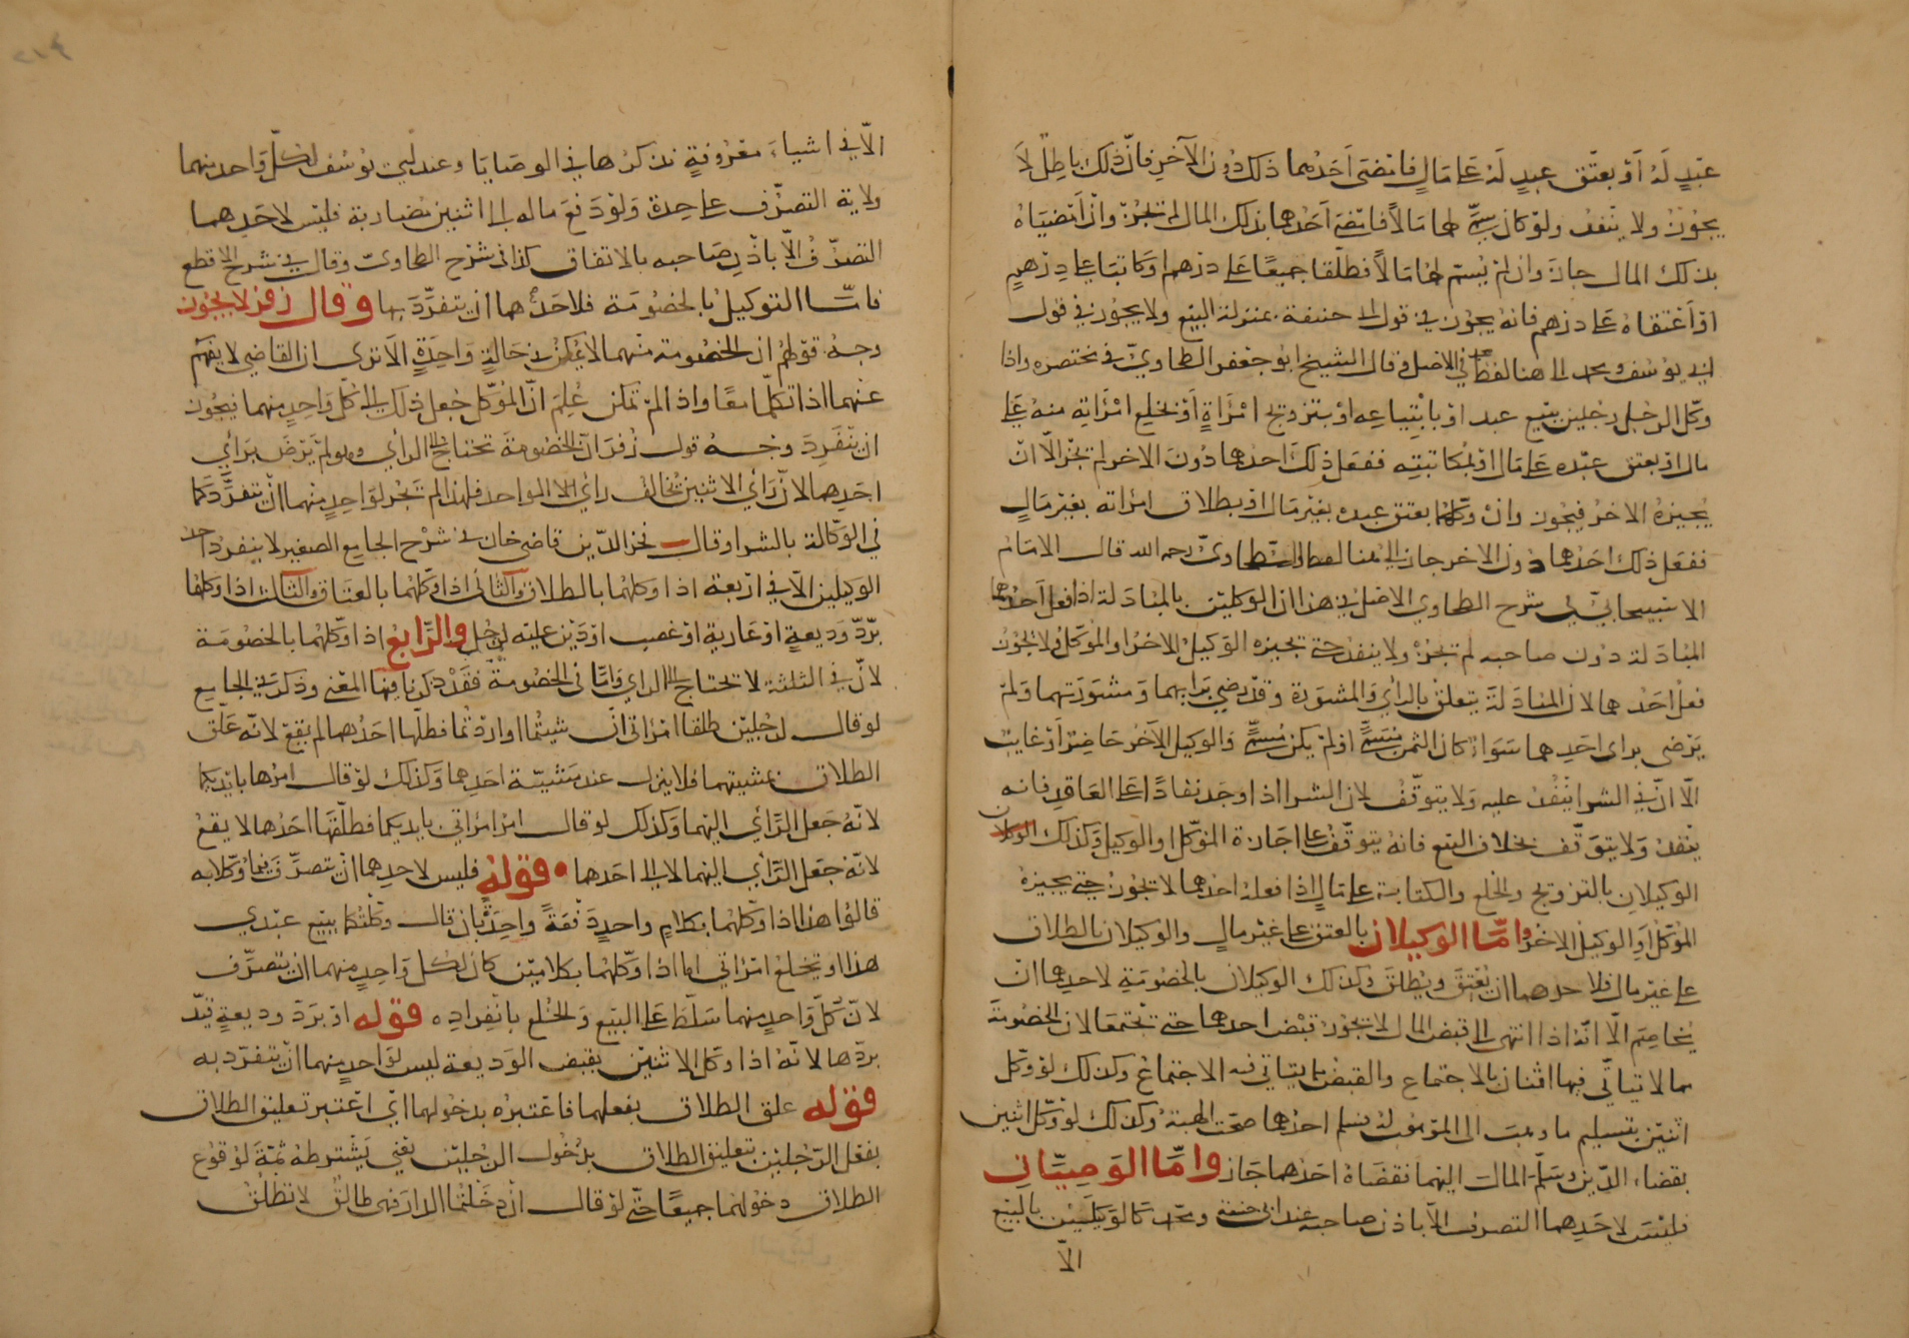 عبد له أو بعتق عبد له على مال فامضى أحدهما ذلك دون الآخر فان ذلك باطل لا
يجوز ولا ينفذ ولو كان سمى لهما مالاً فامضى أحدهما بذلك المال لم تجز وان أمضياه
بذلك المال جاز وان لم يسم لهما مالاً فطلقا جميعًا على درهم او كاتبا على درهم
او أعتقاه على درهم فانه يجوز في قول ابى حنيفة بمنزلة البيع ولا يجوز في قول
ابي يوسف ومحمد الى هنا لفظ محمد في الاصل وقال الشيخ ابو جعفر الطحاوي في مختصره واذا
وكل الرجل رجلين ببيع عبد او بابتياعه او بتزويج امرأة أو بخلع امرأته منه على
مال او بعتق عبده على مال او بمكاتبته ففعل ذلك احدهما دون الاخر لم تجز الا ان
يجيزه الاخر فيجوز وان وكلهما بعتق عبده بغير مال او بطلاق امراته بغير مال
ففعل ذلك احدهما دون الاخر جاز الى هنا لفظ الطحاوي رحمه الله قال الامام
الاسبيجابي في شرح الطحاوي الاصل في هذا ان الوكيلين بالمبادلة اذا فعل أحدهما
المبادلة دون صاحبه لم تجز ولا ينفذ حتى يجيزه الوكيل الاخر او الموكل ولا يجوز
فعل احدهما لان المبادلة يتعلق بالرأي والمشورة وقد رضي برايهما ومشورتهما ولم
يرضى براى احدهما سواء كان الثمن مسمى او لم يكن مسمى والوكيل الآخر حاضرا أو غايب
الا ان في الشرا ينفذ عليه ولا يتوقف لان الشرا اذا وجد نفاذًا على العاقد فانه
ينفذ ولا يتوقف بخلاف البيع فانه يتوقف على اجازة الموكل او الوكيل وكذلك
الوكيلان بالتزويج والخلع والكتابة على مال إذا فعله احدهما لا تجوز حتى يجيزه
الموكل او الوكيل الاخر واما الوكيلان بالعتق على غير مال والوكيلان بالطلاق
على غير مال فلاحدهما ان يعتق ويطلق وكذلك الوكيلان بالخصومة لاحدهما ان
يخاصم الا انه اذا انتهى الى قبض المال لا تجوز قبض احدهما حتى تجتمعا لان الخصومة
مما لا تياتي فيها اثنان بالاجتماع والقبض مما يتياتي فيه الاجتماع وكذلك لو وكل
اثنين بتسليم ما وهبت الى الموهوب له فسلم احدهما صحت الهبة وكذلك لو وكل اثنين
بقضاء الدين وسلم المال اليهما فقضاه احدهما جاز واما الوصيتان
فليس لاحدهما التصرف الا باذن صاحبه عند ابي حنيفة ومحمد كالوكيلين بالبيع
الا
الا في اشياء معروفة نذكرها في الوصايا وعند ابي يوسف لكل واحد منهما
ولاية التصرف على حدة ولو دفع ماله الى اثنين مضاربة فليس لاحدهما
التصرف الا باذن صاحبه بالاتفاق كذا في شرح الطحاوي وقال في شرح الاقطع
فاما التوكيل بالخصومة فلاحدهما ان يتفرد بها وقال زفر لا يجوز
وجه قولهم ان الخصومة منهما لا يمكن في حالة واحدة الا ترى ان القاضي لا يفهم
عنهما اذا تكلما معًا واذا لم تمكن علم ان الموكل جعل ذلك الى كل واحد منهما فيجوز
ان ينفرد وجه قول زفر ان الخصومة تحتاج الى الرأي وهو لم يرض برأي
احدهما لان رأي الاثنين تخالف رأي الواحد فلهذا لم تجز لواحد منهما ان يتفرد كما
في الوكالة بالشرا وقال فخر الدين قاضي خان في شرح الجامع الصغير لا ينفرد احد
الوكيلين الا في اربعة اذا وكلهما بالطلاق والثاني اذا وكلهما بالعتاق والثالث اذا وكلهما
برد وديعة او عارية او غصب او دين عليه لرجل والرابع اذا وكلهما بالخصومة
لان في الثلثة لا تحتاج الى الراي واما في الخصومة فقد ذكرنا فيها المعنى وذكر في الجامع
لو قال لرجلين طلقا امراتي ان شيتما او اردتما فطلقها احدهما لم يقع لانه علق
الطلاق بمشيتهما فلا ينزل عند مشيئة احدهما وكذلك لو قال امرها بايديكما
لانه جعل الرأي اليهما وكذلك لو قال امر امراتي بايديكما فطلقها احدهما لا يقع
لانه جعل الرأي اليهما لا الى احدهما • قوله فليس لاحدهما ان يتصرف فيما وكلا به
قالوا هذا اذا وكلهما بكلام واحد دفعة واحدة بان قال وكلتكما ببيع عبدي
هذا او بخلع امرأتي اما اذا وكلهما بكلامين كان لكل واحد منهما ان يتصرف
لان كل واحد منهما سلط على البيع والخلع بانفراده قوله او برد وديعة قيد
بردها لانه اذا وكل الاثنين بقبض الوديعة ليس لواحد منهما ان يتفرد به
قوله علق الطلاق بفعلهما فاعتبره بدخولهما اي اعتبر تعليق الطلاق
بفعل الرجلين بتعليق الطلاق بدخول الرجلين يعني يشترط ثمة لوقوع
الطلاق دخولهما جميعًا حتى لو قال ان دخلتما الدار فهي طالق لا تطلق